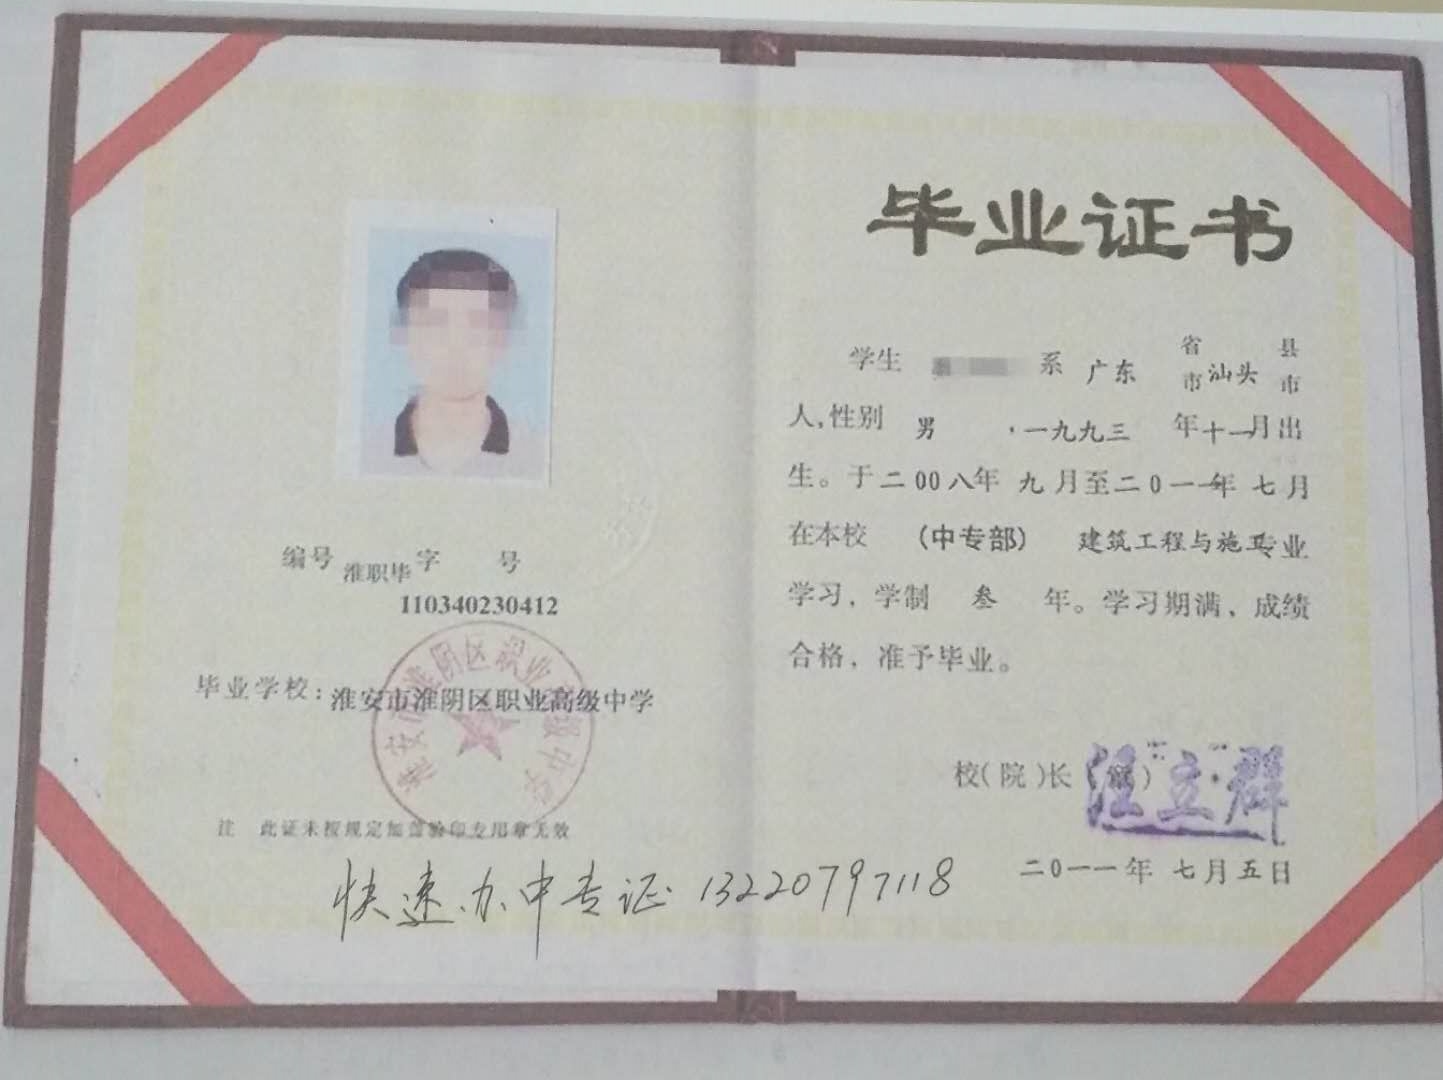 编号 淮职毕 字 号
110340230412
淮安市淮阴区职业高级中学
毕业学校：淮安市淮阴区职业高级中学
注 此证未按规定加盖验印专用章无效
快速办中专证 13220797118
毕业证书
学生 系 广东 省市 汕头 县市
人,性别 男 ·一九九三 年十一月出
生。于二00八年 九月至二0一一年 七月
在本校 (中专部) 建筑工程与施工专业
学习，学制 叁 年。学习期满，成绩
合格，准予毕业。
校(院)长 立群
二0一一年 七月五日